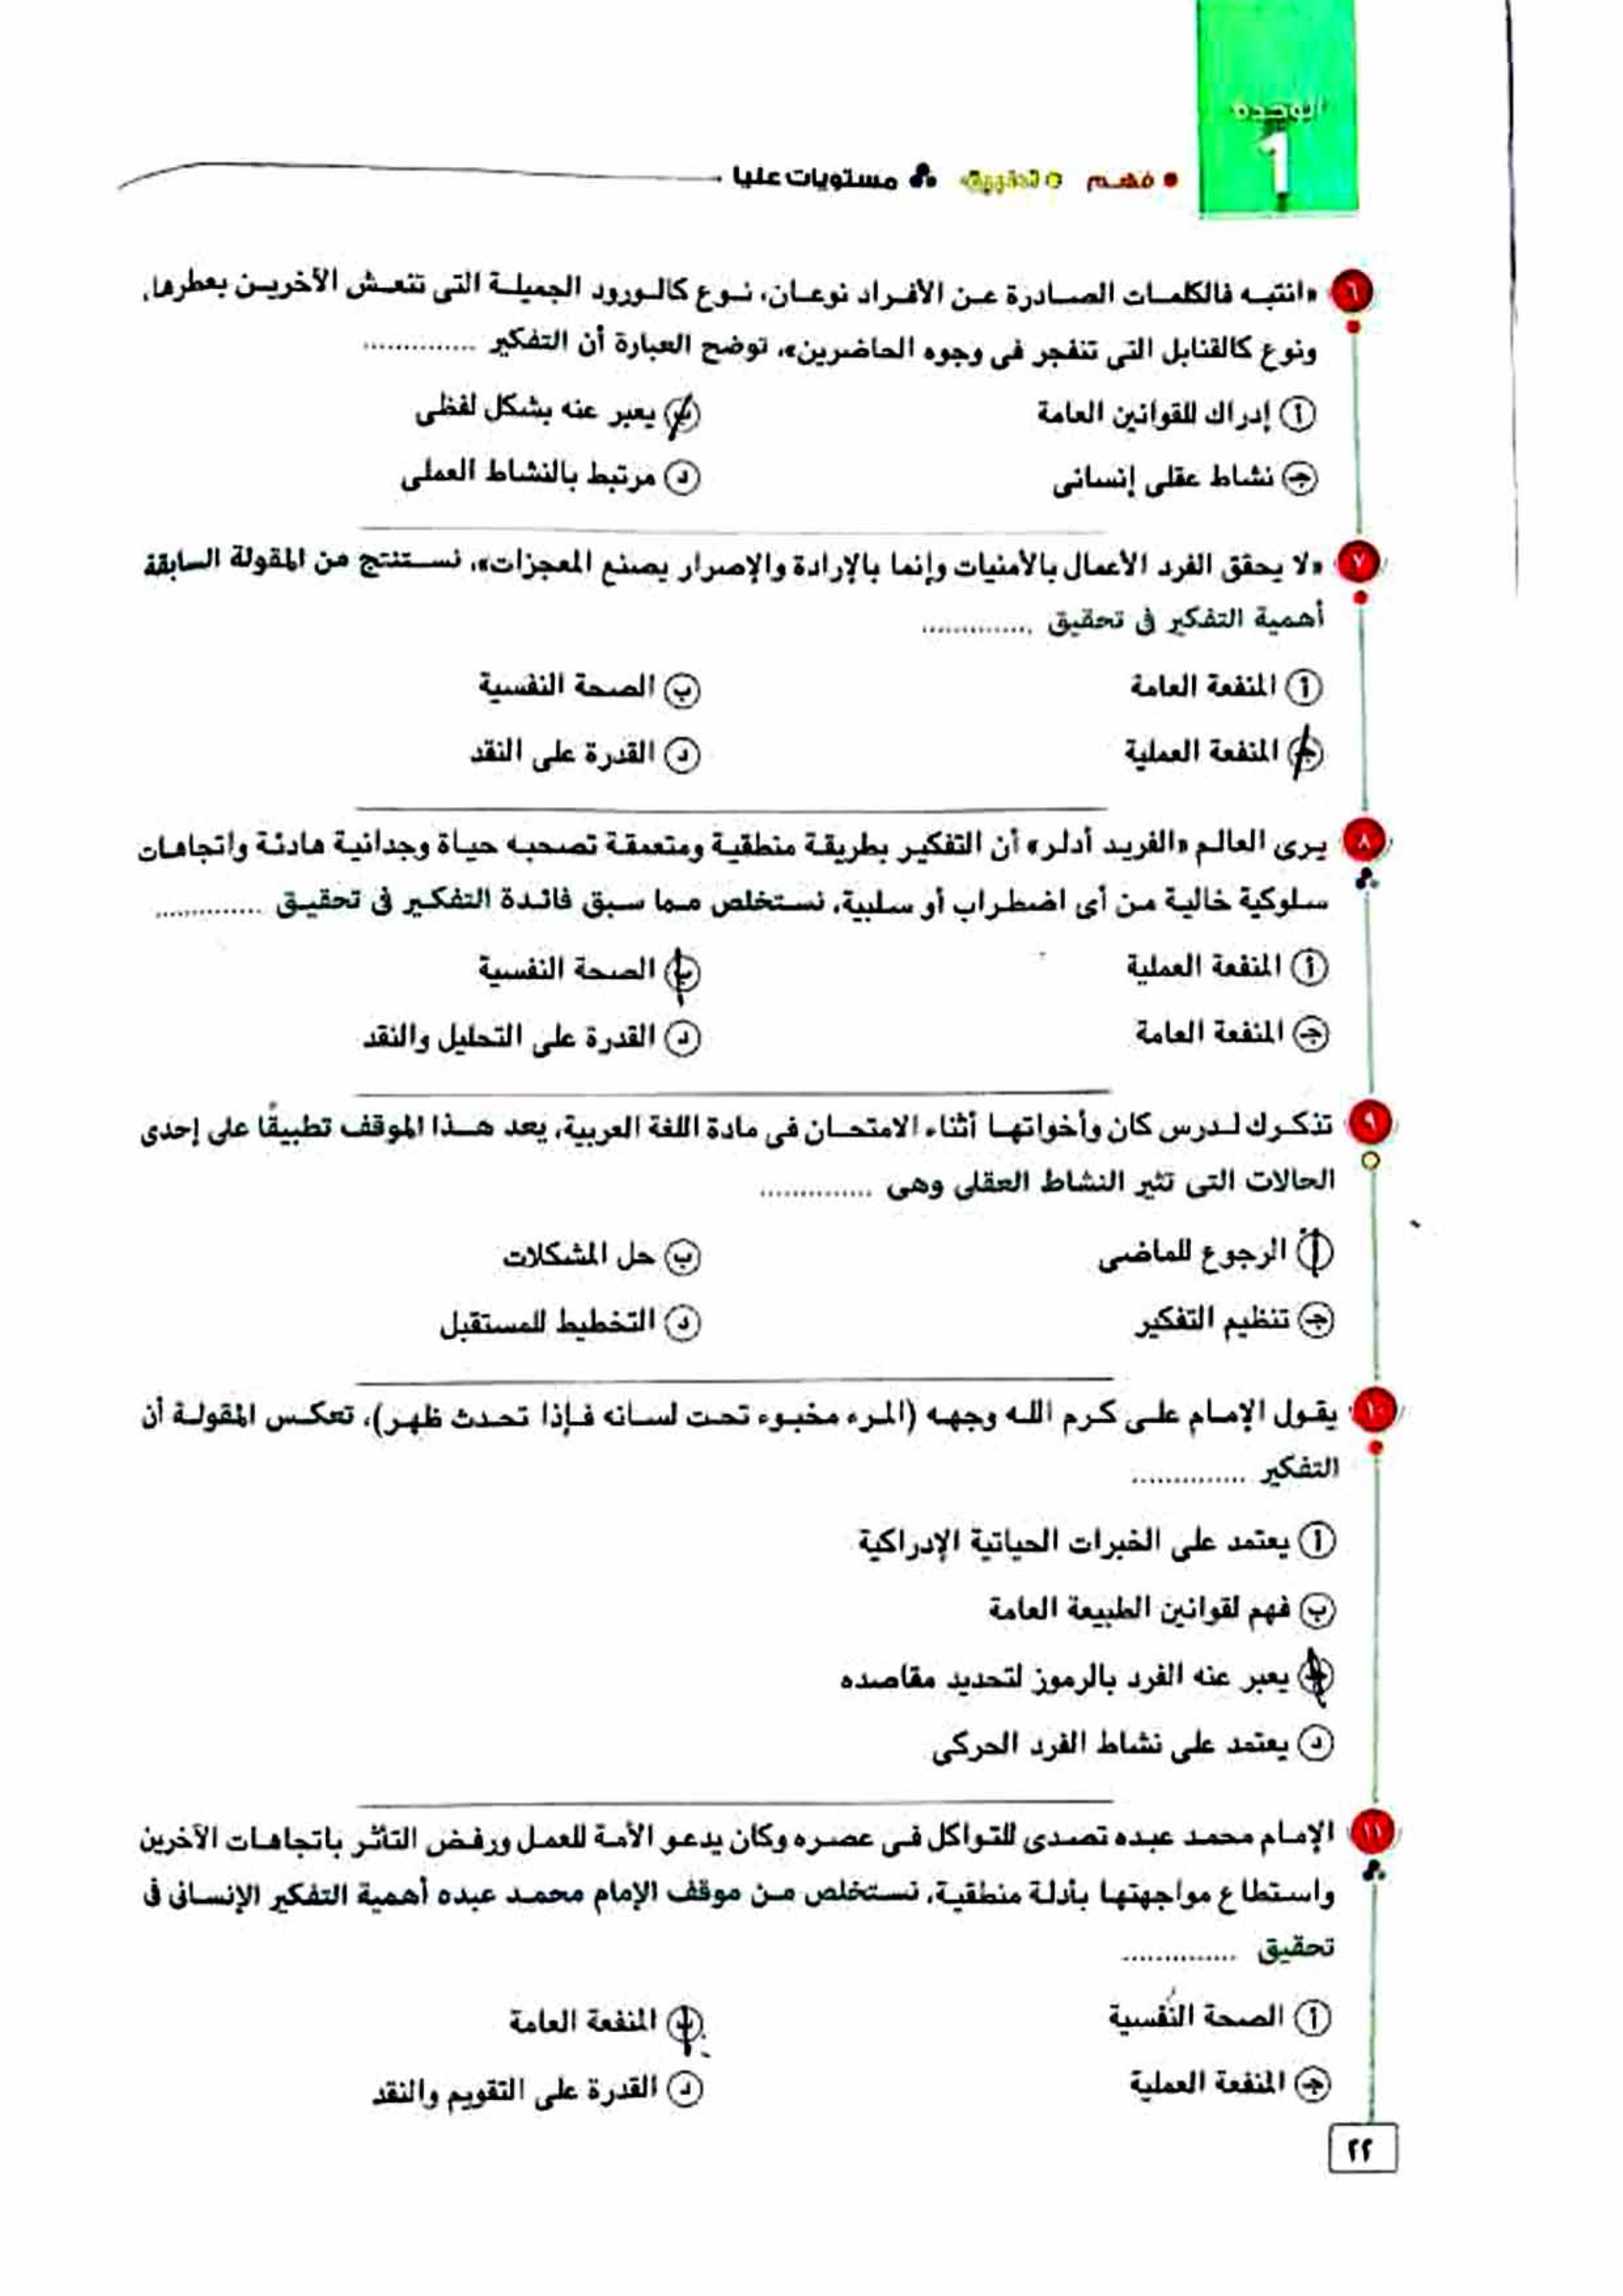 الوحدة
1
فهم تطبيق مستويات عليا
٦ «انتبه فالكلمات الصادرة عن الأفراد نوعان، نوع كالورود الجميلة التى تنعش الآخرين بعطرها،
ونوع كالقنابل التى تنفجر فى وجوه الحاضرين»، توضح العبارة أن التفكير ..............
أ إدراك للقوانين العامة
ب يعبر عنه بشكل لفظى
جـ نشاط عقلى إنسانى
د مرتبط بالنشاط العملى
٧ «لا يحقق الفرد الأعمال بالأمنيات وإنما بالإرادة والإصرار يصنع المعجزات»، نستنتج من المقولة السابقة
أهمية التفكير فى تحقيق ..............
أ المنفعة العامة
ب الصحة النفسية
جـ المنفعة العملية
د القدرة على النقد
٨ يرى العالم «الفريد أدلر» أن التفكير بطريقة منطقية ومتعمقة تصحبه حياة وجدانية هادئة واتجاهات
سلوكية خالية من أى اضطراب أو سلبية، نستخلص مما سبق فائدة التفكير فى تحقيق ..............
أ المنفعة العملية
ب الصحة النفسية
جـ المنفعة العامة
د القدرة على التحليل والنقد
٩ تذكرك لدرس كان وأخواتها أثناء الامتحان فى مادة اللغة العربية، يعد هذا الموقف تطبيقًا على إحدى
الحالات التى تثير النشاط العقلى وهى ..............
أ الرجوع للماضى
ب حل المشكلات
جـ تنظيم التفكير
د التخطيط للمستقبل
١٠ يقول الإمام على كرم الله وجهه (المرء مخبوء تحت لسانه فإذا تحدث ظهر)، تعكس المقولة أن
التفكير ..............
أ يعتمد على الخبرات الحياتية الإدراكية
ب فهم لقوانين الطبيعة العامة
جـ يعبر عنه الفرد بالرموز لتحديد مقاصده
د يعتمد على نشاط الفرد الحركى
١١ الإمام محمد عبده تصدى للتواكل فى عصره وكان يدعو الأمة للعمل ورفض التأثر باتجاهات الآخرين
واستطاع مواجهتها بأدلة منطقية، نستخلص من موقف الإمام محمد عبده أهمية التفكير الإنسانى فى
تحقيق ..............
أ الصحة النفسية
ب المنفعة العامة
جـ المنفعة العملية
د القدرة على التقويم والنقد
٢٢